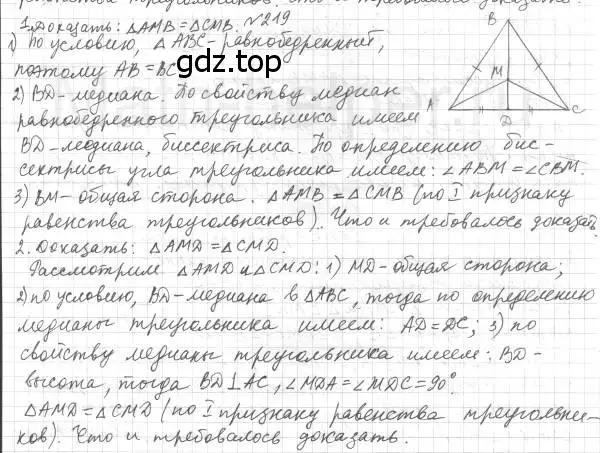 1. Доказать: △AMB = △CMB. №219
1) По условию, △ABC - равнобедренный,
поэтому AB = BC
gdz.top
2) BD - медиана. По свойству медиан
равнобедренного треугольника имеем
BD - медиана, биссектриса. По определению бис-
сектрисы угла треугольника имеем: ∠ABM = ∠CBM.
3) BM - общая сторона. △AMB = △CMB (по I признаку
равенства треугольников). Что и требовалось доказать.
2. Доказать: △AMD = △CMD.
Рассмотрим △AMD и △CMD: 1) MD - общая сторона;
2) по условию, BD - медиана в △ABC, тогда по определению
медианы треугольника имеем: AD = DC; 3) по
свойству медианы треугольника имеем: BD -
высота, тогда BD ⊥ AC, ∠MDA = ∠MDC = 90°.
△AMD = △CMD (по I признаку равенства треугольни-
ков). Что и требовалось доказать.
B
M
A
D
C